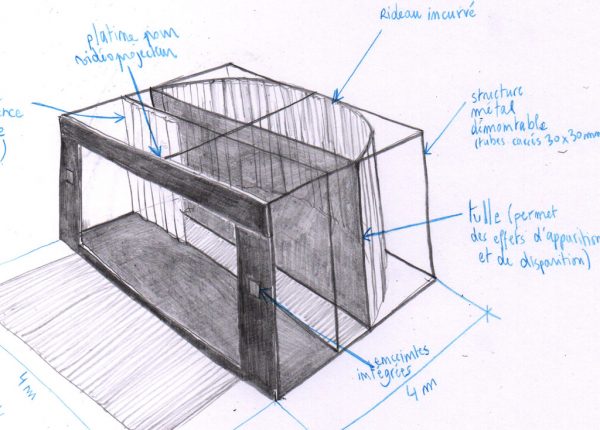 Rideau incurvé
platine pour
vidéoprojecteur
ence
e
)
structure
métal
démontable
(tubes carrés 30x30mm
tulle (permet
des effets d'apparition
et de disparition)
enceintes
intégrées
4 m
4 m